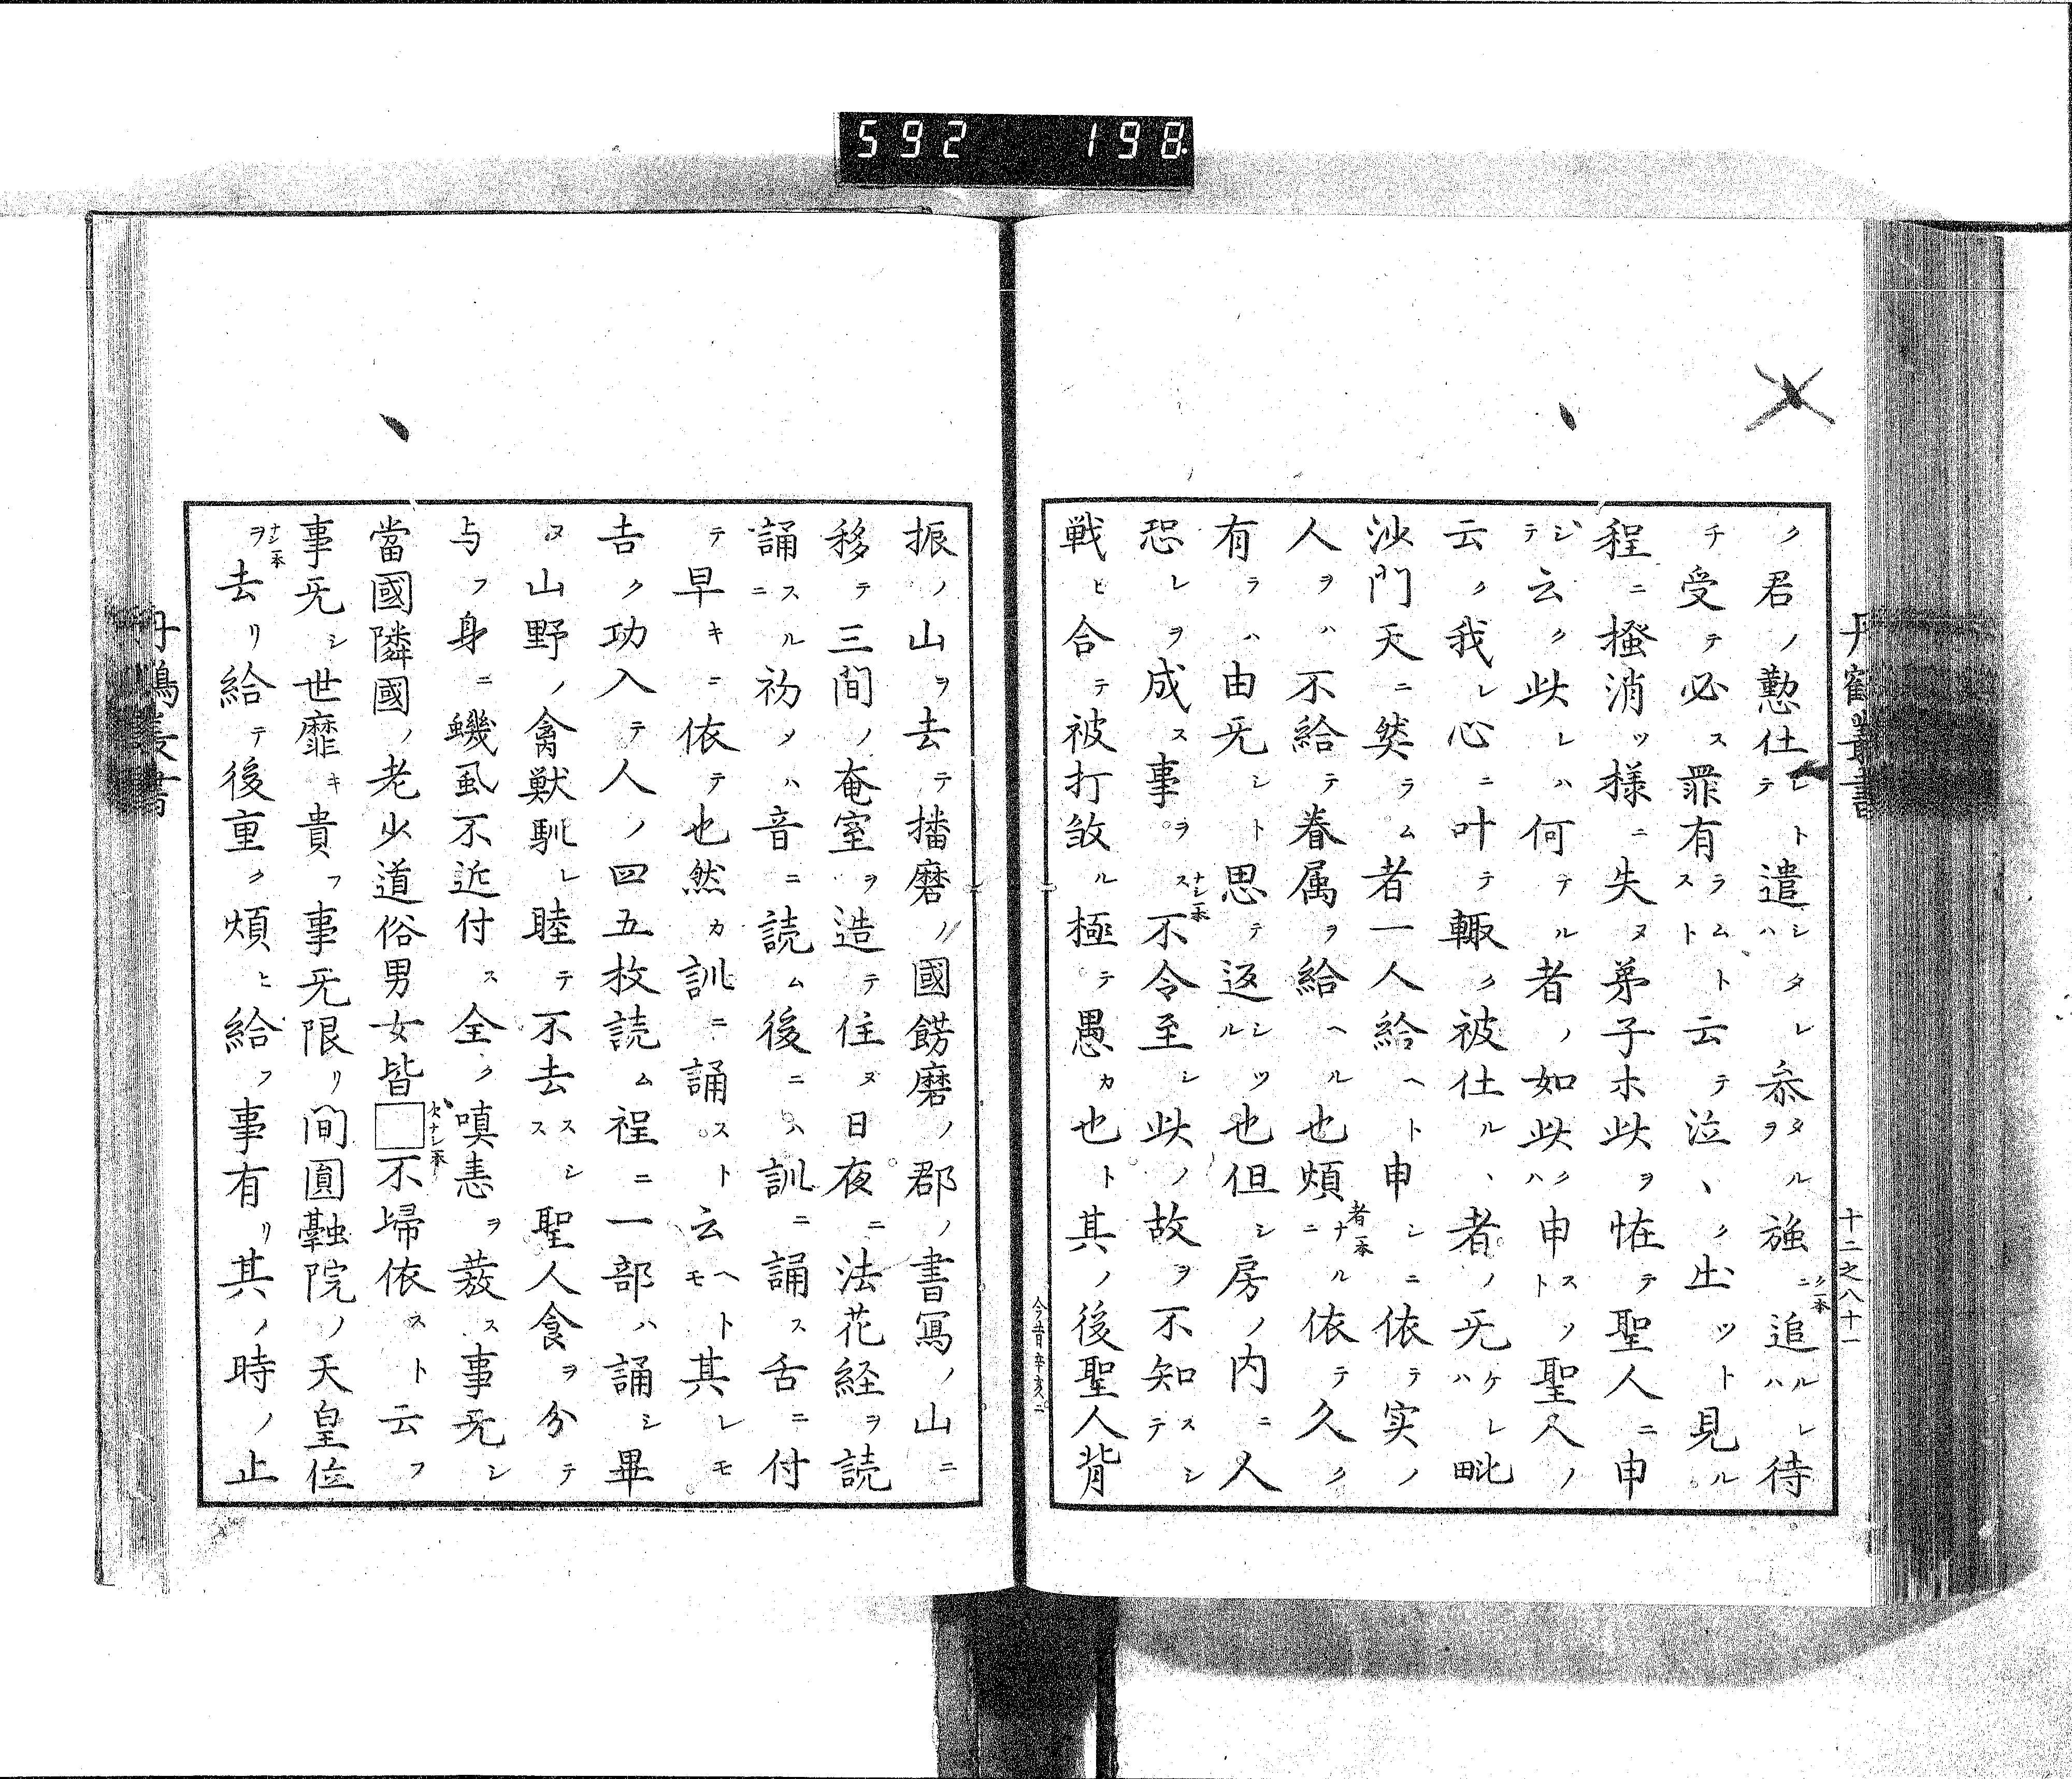 592 198
丹鶴叢書
十二之八十一
ク君ノ懃仕レトテ遣シハタレ参タルヲ強ニク一本追ルハレ待
チ受テ必ス罪有ラムトストト云テ泣、ク出ツト見ル
程ニ掻消ツ様ニ失ヌ弟子ホ此ヲ恠テ聖人ニ申
シテ云ク此レハ何テル者ノ如此クハ申ステトソ聖人ノ
云ク我レ心ニ叶テ輙ク被仕ル、者ノ旡ケレハ毗
沙門天ニ然ラム者一人給ヘト申シニ依テ实ノ
人ヲハ不給テ眷属ヲ給ヘル也煩ニナル者一本依テ久ク
有ラハ由旡シト思テ返シルツ也但シ房ノ内ニ人
恐レヲ成ス事ヲスナシ一本不令至シ此ノ故ヲ不知スシテ
戦ヒ合テ被打敓ル極テ愚カ也ト其ノ後聖人背
今昔辛亥ニ
振ノ山ヲ去テ播磨ノ國餝磨ノ郡ノ書寫ノ山ニ
移テ三間ノ奄室ヲ造テ住ヌ日夜ニ法花経ヲ読
誦スルニ初ノハ音ニ読ム後ニハ訓ニ誦ス舌ニ付
テ早キニ依テ也然カ訓ニ誦ストモ云ヘトモ其レモ
吉ク功入テ人ノ四五枚読ム程ニ一部ハ誦シ畢
ヌ山野ノ禽獣馴レ睦テ不去ススシ聖人食ヲ分テ
与フ身ニ蟣虱不近付ス全ク嗔恚ヲ蕟ス事旡シ
當國隣國ノ老少道俗男女皆□欠ナシ一本不㱕依スト云フ
事旡シ世靡キ貴フ事旡限リ間圓融院ノ天皇位
ヲナシ一本去リ給テ後重ク煩ヒ給フ事有リ其ノ時ノ止
丹鶴叢書